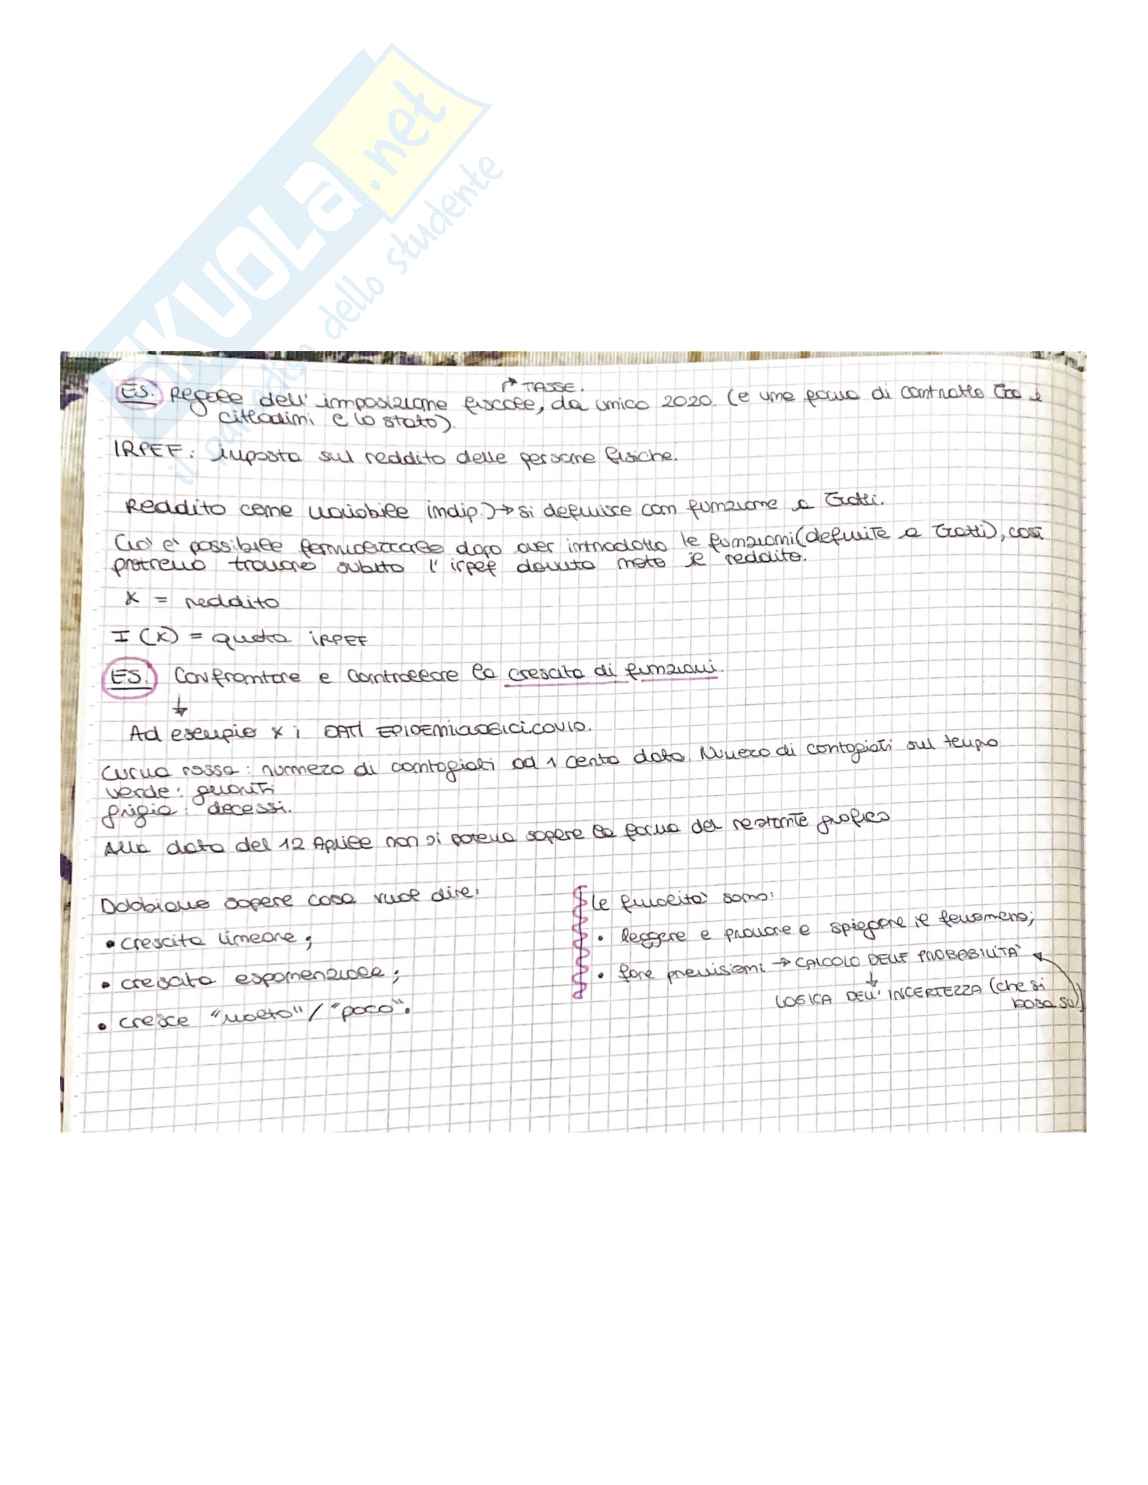 SKUOLA.net
il portale dello studente
↱ TASSE.
ES. Regole dell'imposizione fiscale, da unico 2020 (è una forma di contratto tra i
cittadini e lo stato)
IRPEF: imposta sul reddito delle persone fisiche.
Reddito come variabile indip.) → si definisce con funzione a tratti.
Ciò è possibile formalizzarlo dopo aver introdotto le funzioni (definite a tratti), così
potremo trovare subito l'irpef dovuta noto il reddito.
X = reddito
I(X) = quota IRPEF
ES. Confrontare e controllare la crescita di funzioni.
↓
Ad esempio x i DATI EPIDEMIOLOGICI COVID.
Curva rossa: numero di contagiati ad 1 certa data. Numero di contagiati sul tempo
verde: guariti
grigia: decessi.
Alla data del 12 Aprile non si poteva sapere la forma del restante grafico
Dobbiamo sapere cosa vuol dire:
• crescita lineare;
• crescita esponenziale;
• cresce "molto"/"poco".
le finalità sono:
• leggere e provare e spiegare il fenomeno;
• fare previsioni → CALCOLO DELLE PROBABILITÀ
↓
LOGICA DELL'INCERTEZZA (che si
basa su)